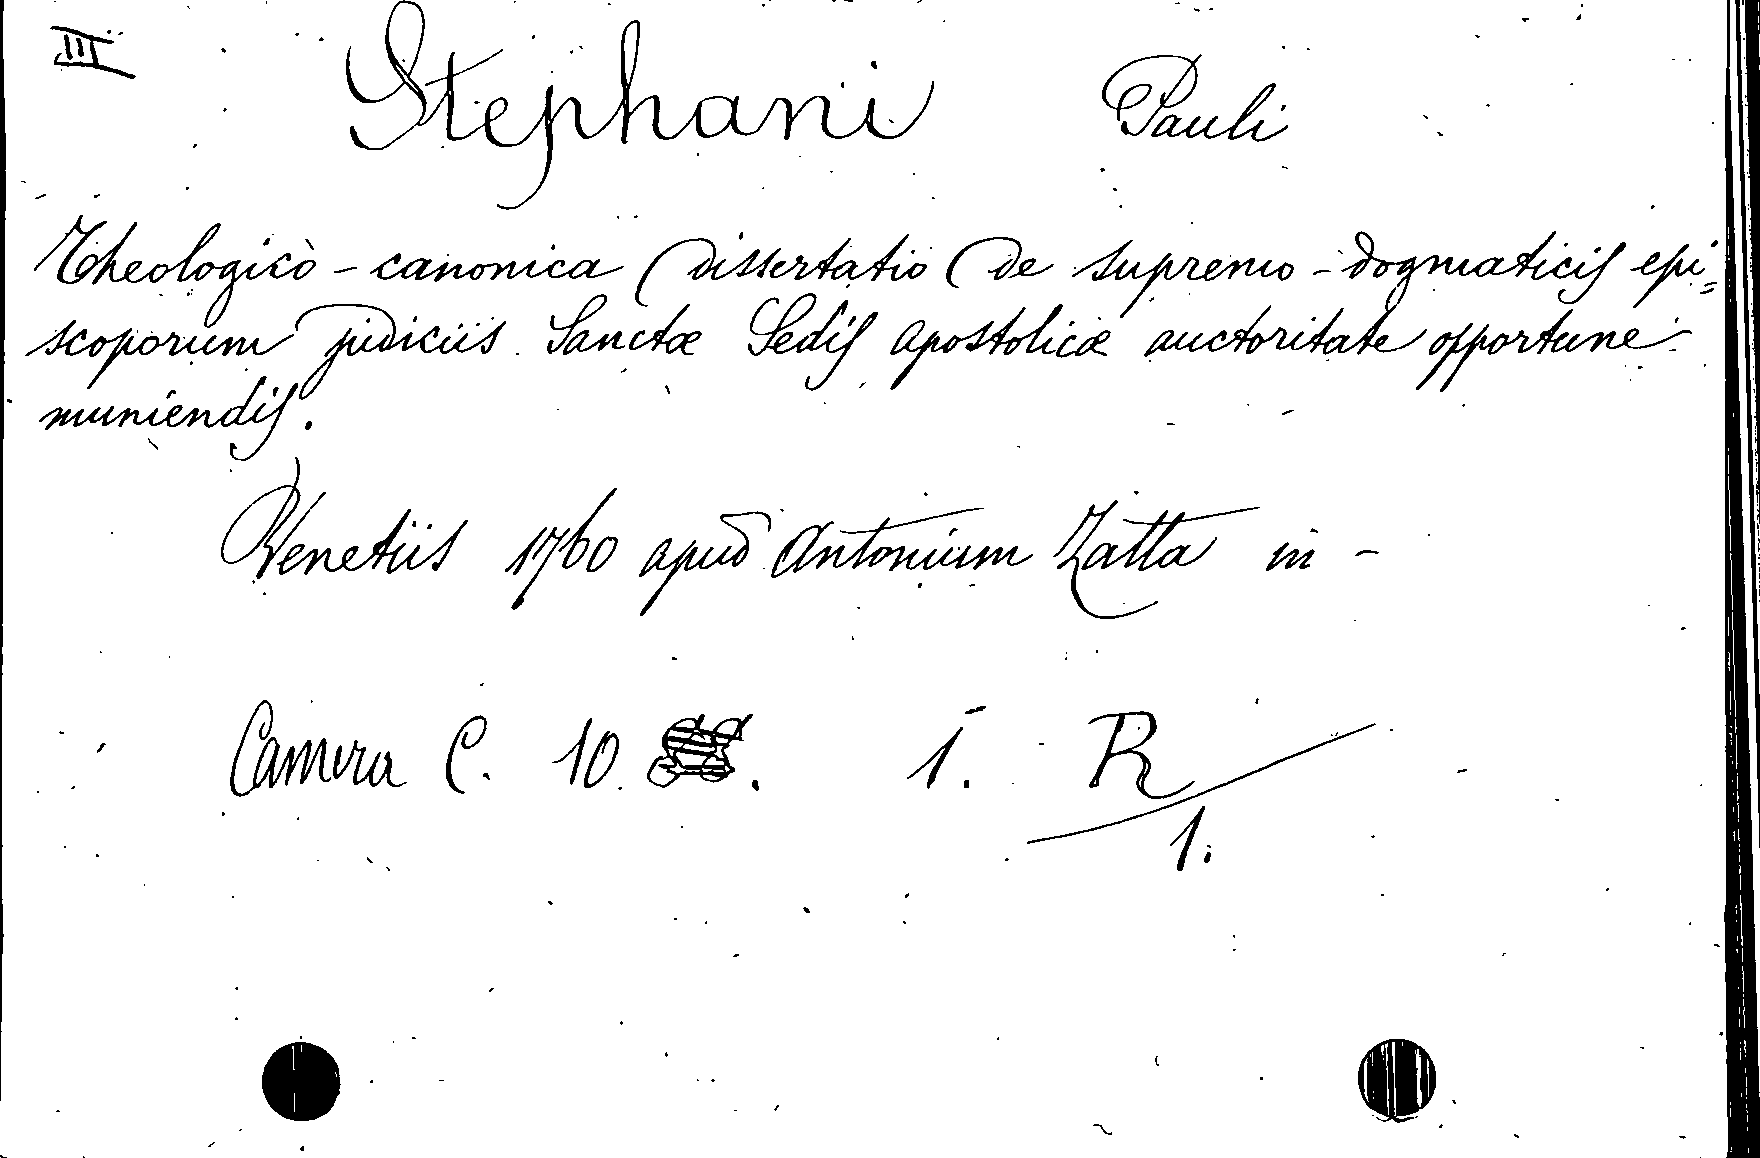 III
Stephani Pauli
Theologicò-canonica dissertatio de supremo-dogmaticis epi=
scoporum judiciis Sanctæ Sedis apostolicæ auctoritate opportune
muniendis.
Venetiis 1760 apud Antonium Zatta in -
Camera C. 10. 1. R
1.